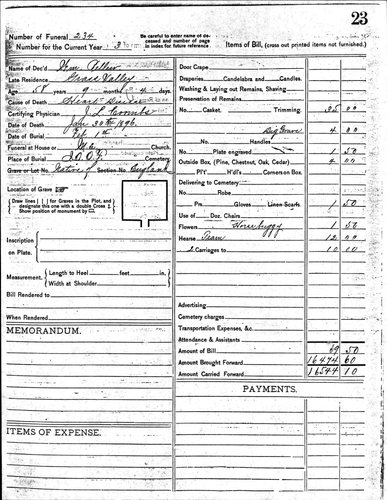 23
Number of Funeral 234
Number for the Current Year 3
Be careful to enter name of deceased and number of page in index for future reference
Items of Bill, (cross out printed items not furnished.)
Name of Dec'd Wm
Late Residence Grass Valley
Age 58 years 9 months 4 days
Cause of Death Heart Disease
Certifying Physician J. L. Coombs
Date of Death Jan 30th 1896
Date of Burial Feb 1st
Funeral at House or M.E. Church.
Place of Burial I.O.O.F. Cemetery.
Grave or Lot No. Native of Section No. England
Location of Grave
Draw lines | | | for Graves in the Plot, and
designate this one with a double Cross
Show position of monument by
Inscription
on Plate.
Measurement. Length to Heel feet in.
Width at Shoulder
Bill Rendered to
When Rendered
MEMORANDUM.
ITEMS OF EXPENSE.
Door Crape
Draperies Candelabra and Candles.
Washing & Laying out Remains, Shaving
Preservation of Remains
No. Casket. Trimming 35 00
Dig Grave 4 00
No. Handles
No. Plate engraved 1 50
Outside Box (Pine, Chestnut, Oak, Cedar) 4 00
Pl'f H'd'l's Corners on Box.
Delivering to Cemetery
No. Robe
Pr. Gloves Linen Scarfs 1 50
Use of Doz. Chairs
Flowers Horse buggy 1 50
Hearse Team 12 00
2 Carriages to 10 00
Advertising
Cemetery charges
Transportation Expenses, &c.
Attendance & Assistants
Amount of Bill 69 50
Amount Brought Forward 16474 60
Amount Carried Forward 16544 10
PAYMENTS.